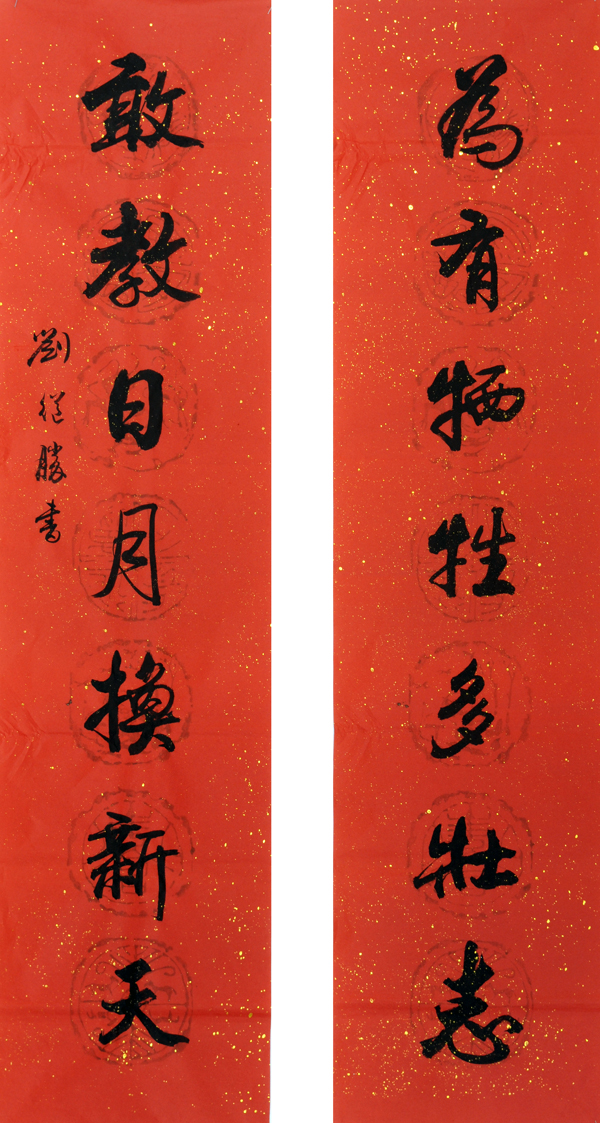 為有犧牲多壮志
敢教日月換新天
劉從勝書